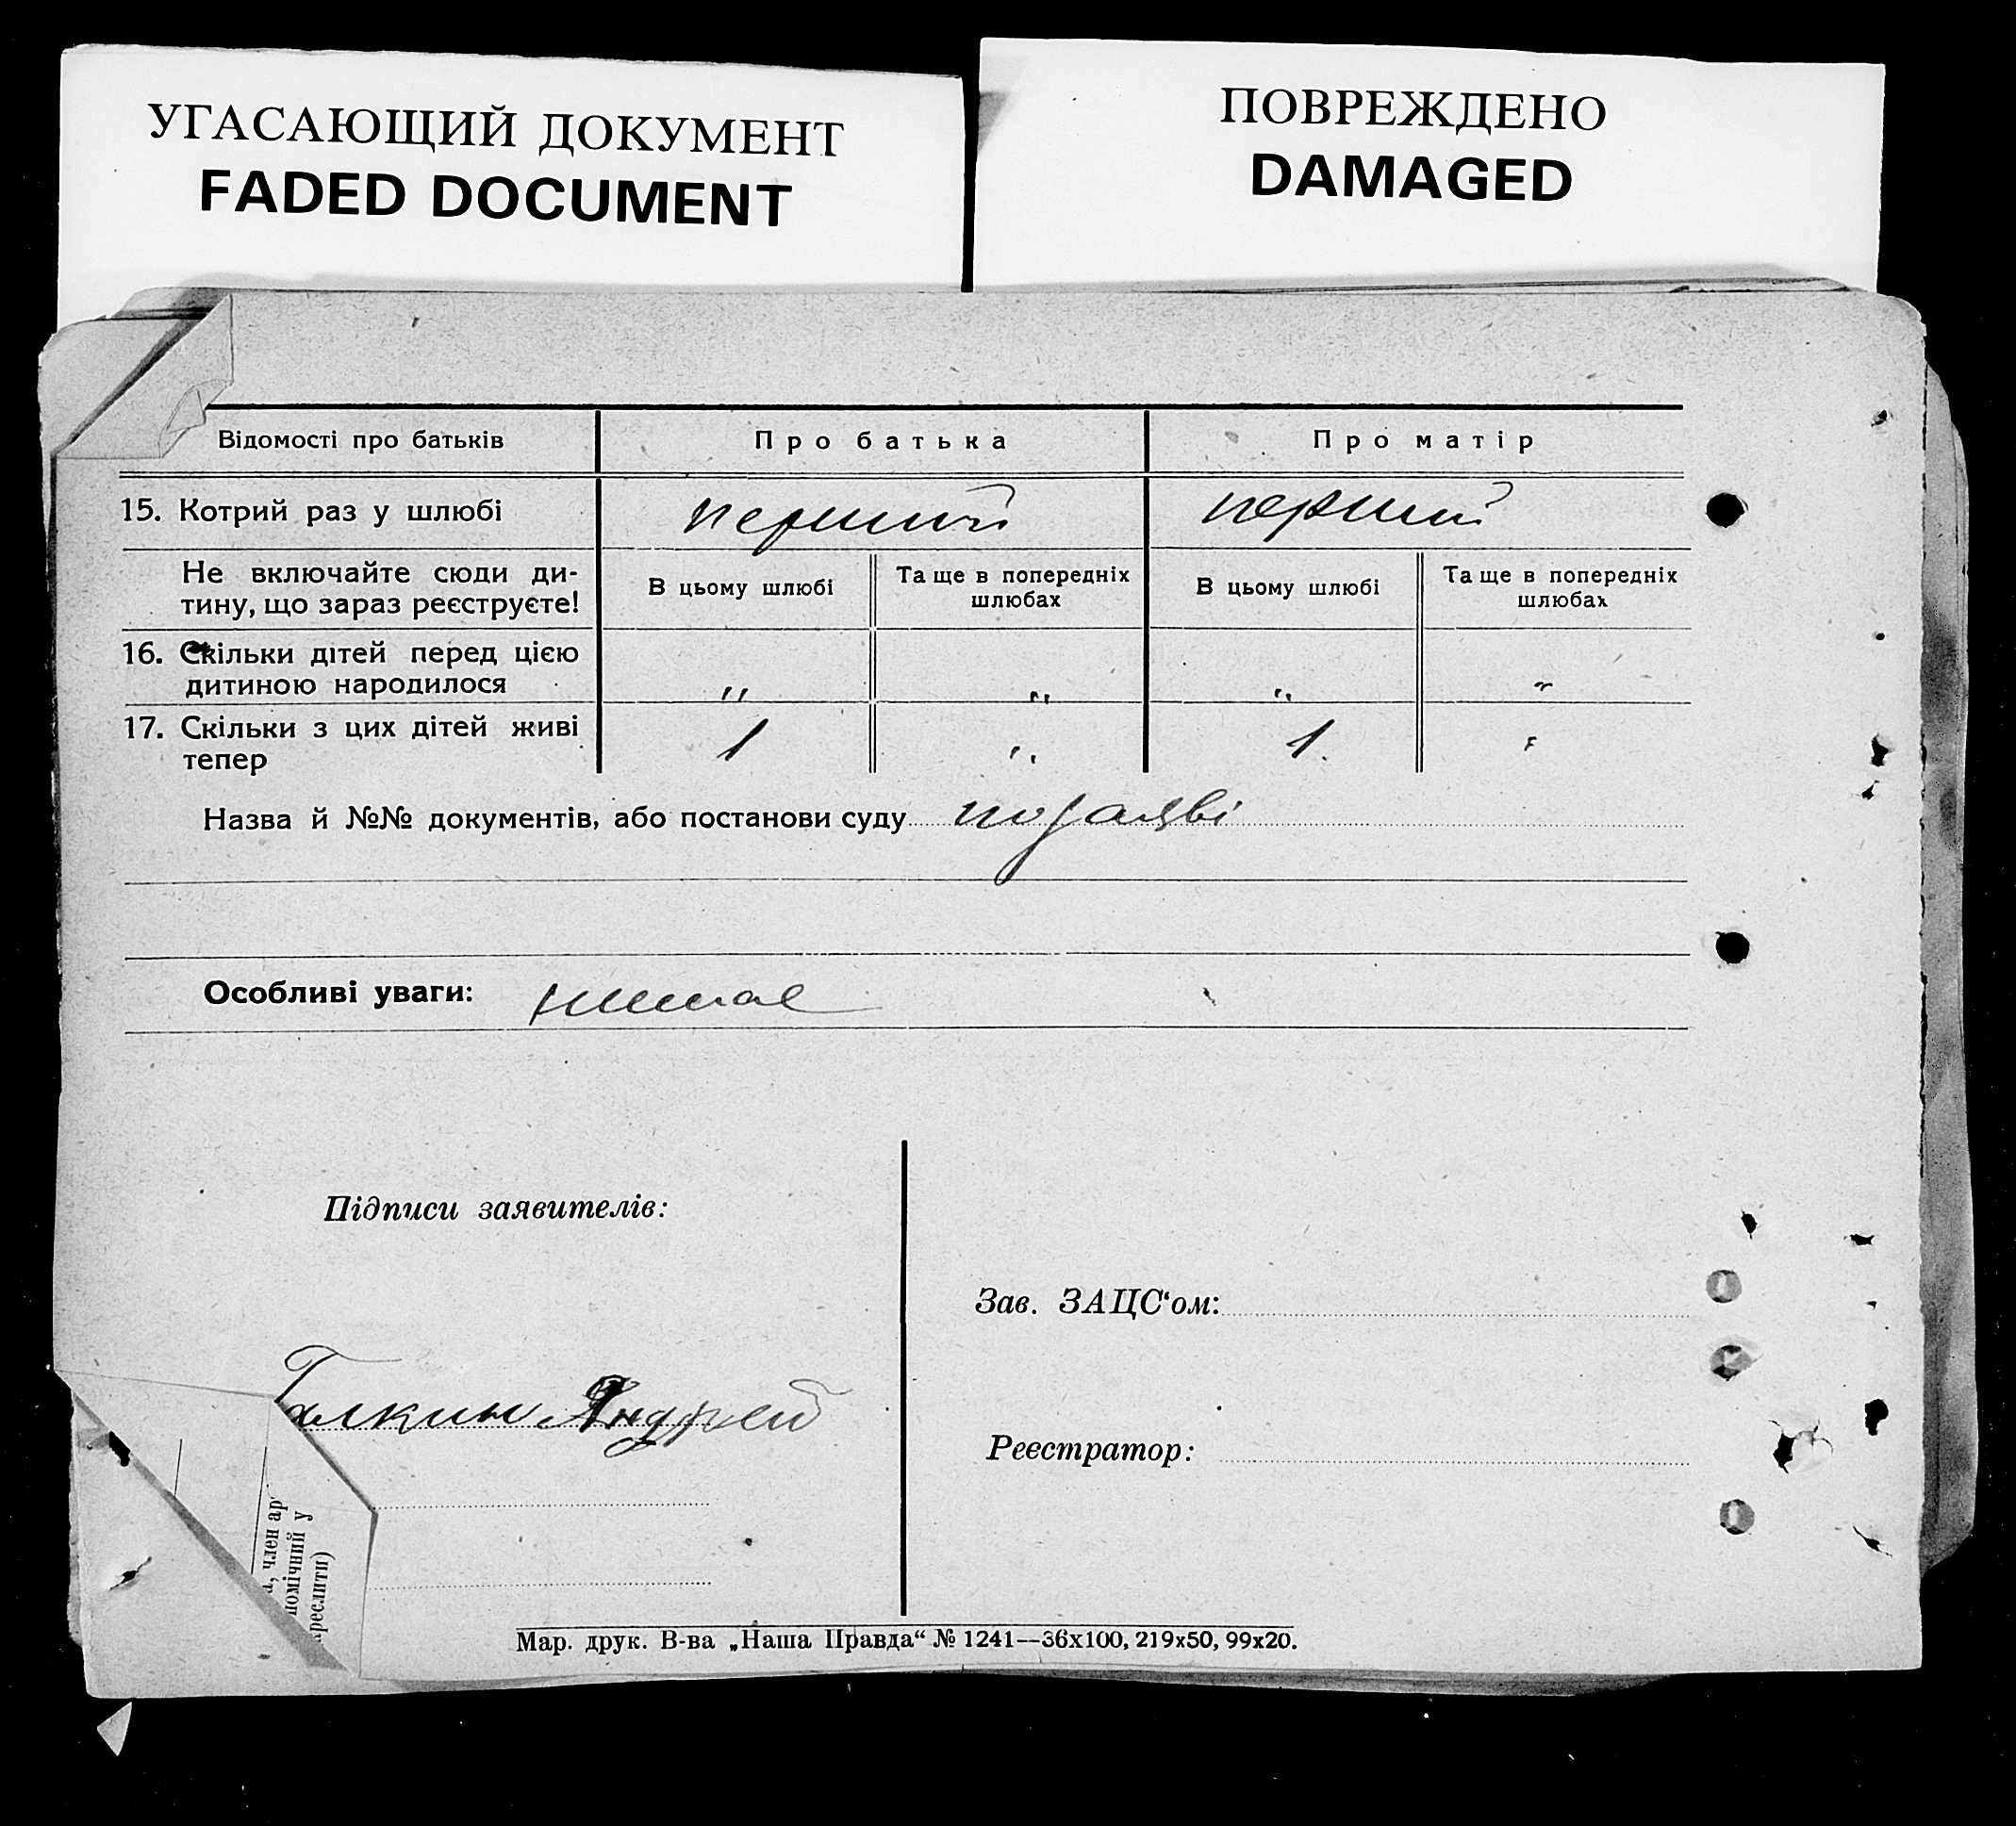 УГАСАЮЩИЙ ДОКУМЕНТ
FADED DOCUMENT
ПОВРЕЖДЕНО
DAMAGED
Відомості про батьків
Про батька
Про матір
15. Котрий раз у шлюбі
перший
перший
Не включайте сюди ди-
тину, що зараз реєструєте!
В цьому шлюбі
Та ще в попередніх
шлюбах
В цьому шлюбі
Та ще в попередніх
шлюбах
16. Скільки дітей перед цією
дитиною народилося
„
„
„
„
17. Скільки з цих дітей живі
тепер
1
„
1.
Назва й №№ документів, або постанови суду по заяві
Особливі уваги: немає
Підписи заявителів:
Галкин Андрей
Зав. ЗАЦС‘ом:
Реєстратор:
, член ар
помічний у
креслити)
Мар. друк. В-ва „Наша Правда“ № 1241—36х100, 219х50, 99х20.